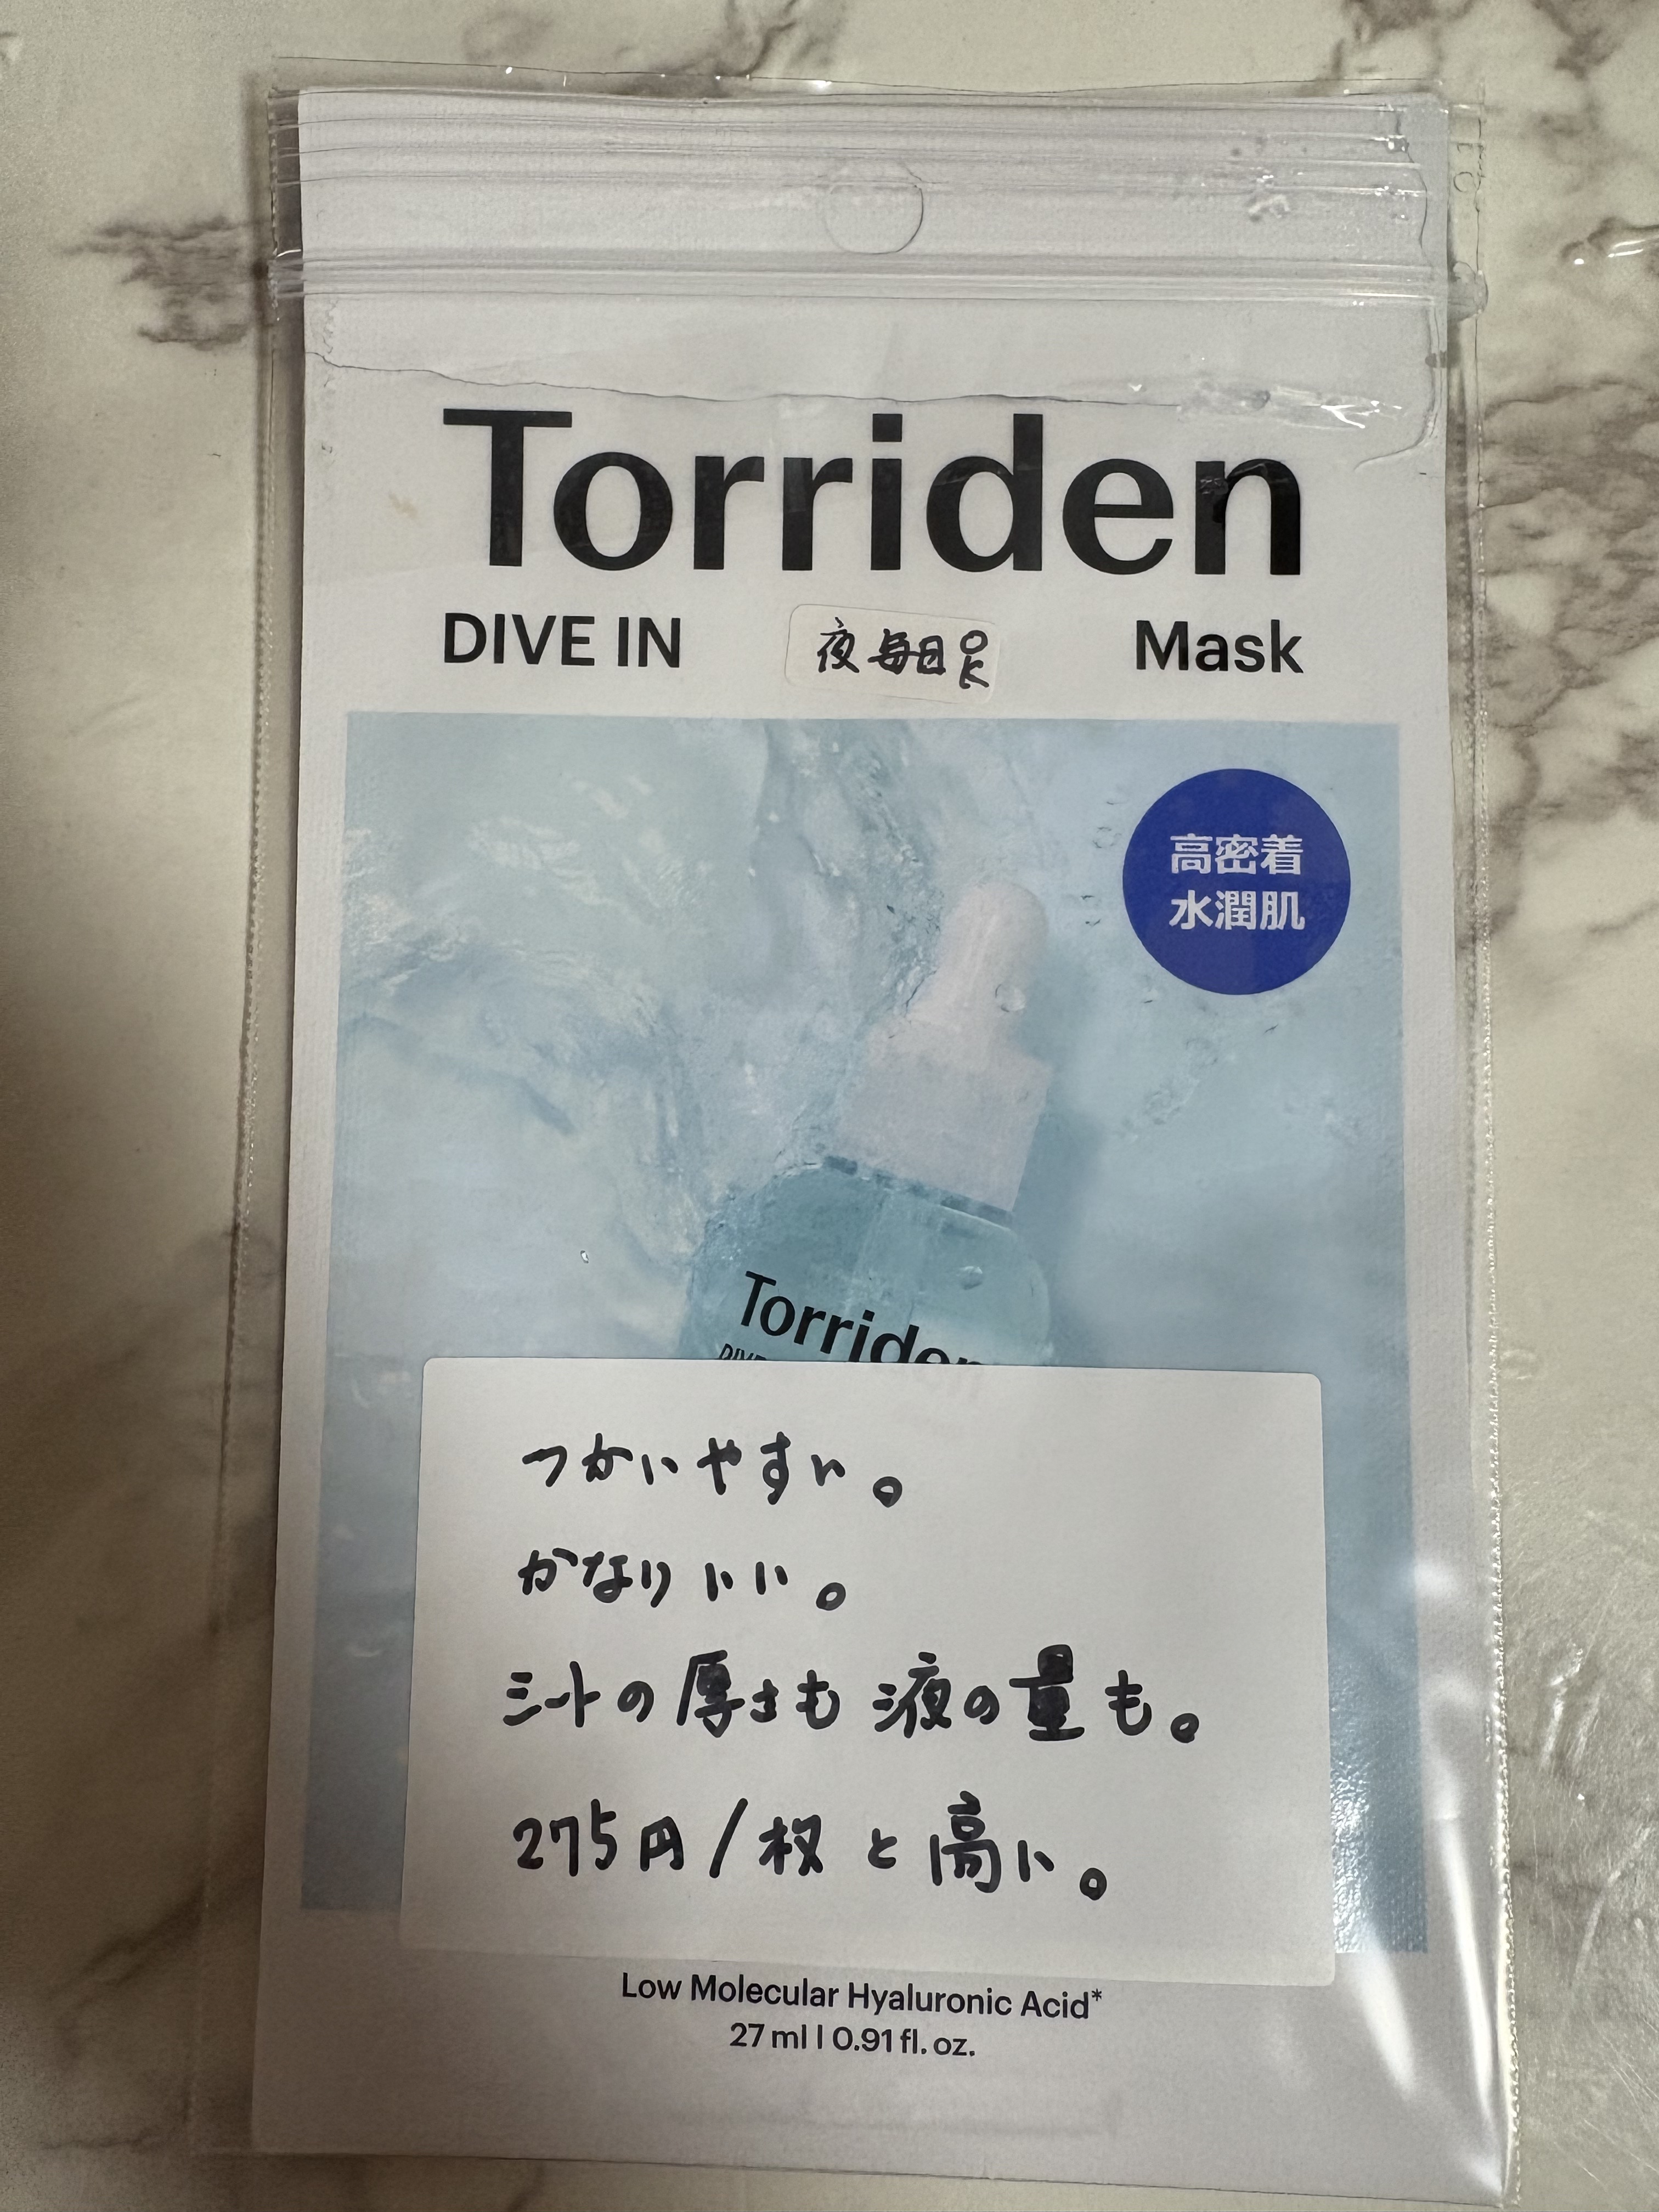 Torriden
DIVE IN 夜毎日OK Mask
高密着
水潤肌
Torriden
つかいやすい。
かなりいい。
シートの厚さも液の量も。
275円/枚と高い。
Low Molecular Hyaluronic Acid*
27 ml | 0.91 fl. oz.